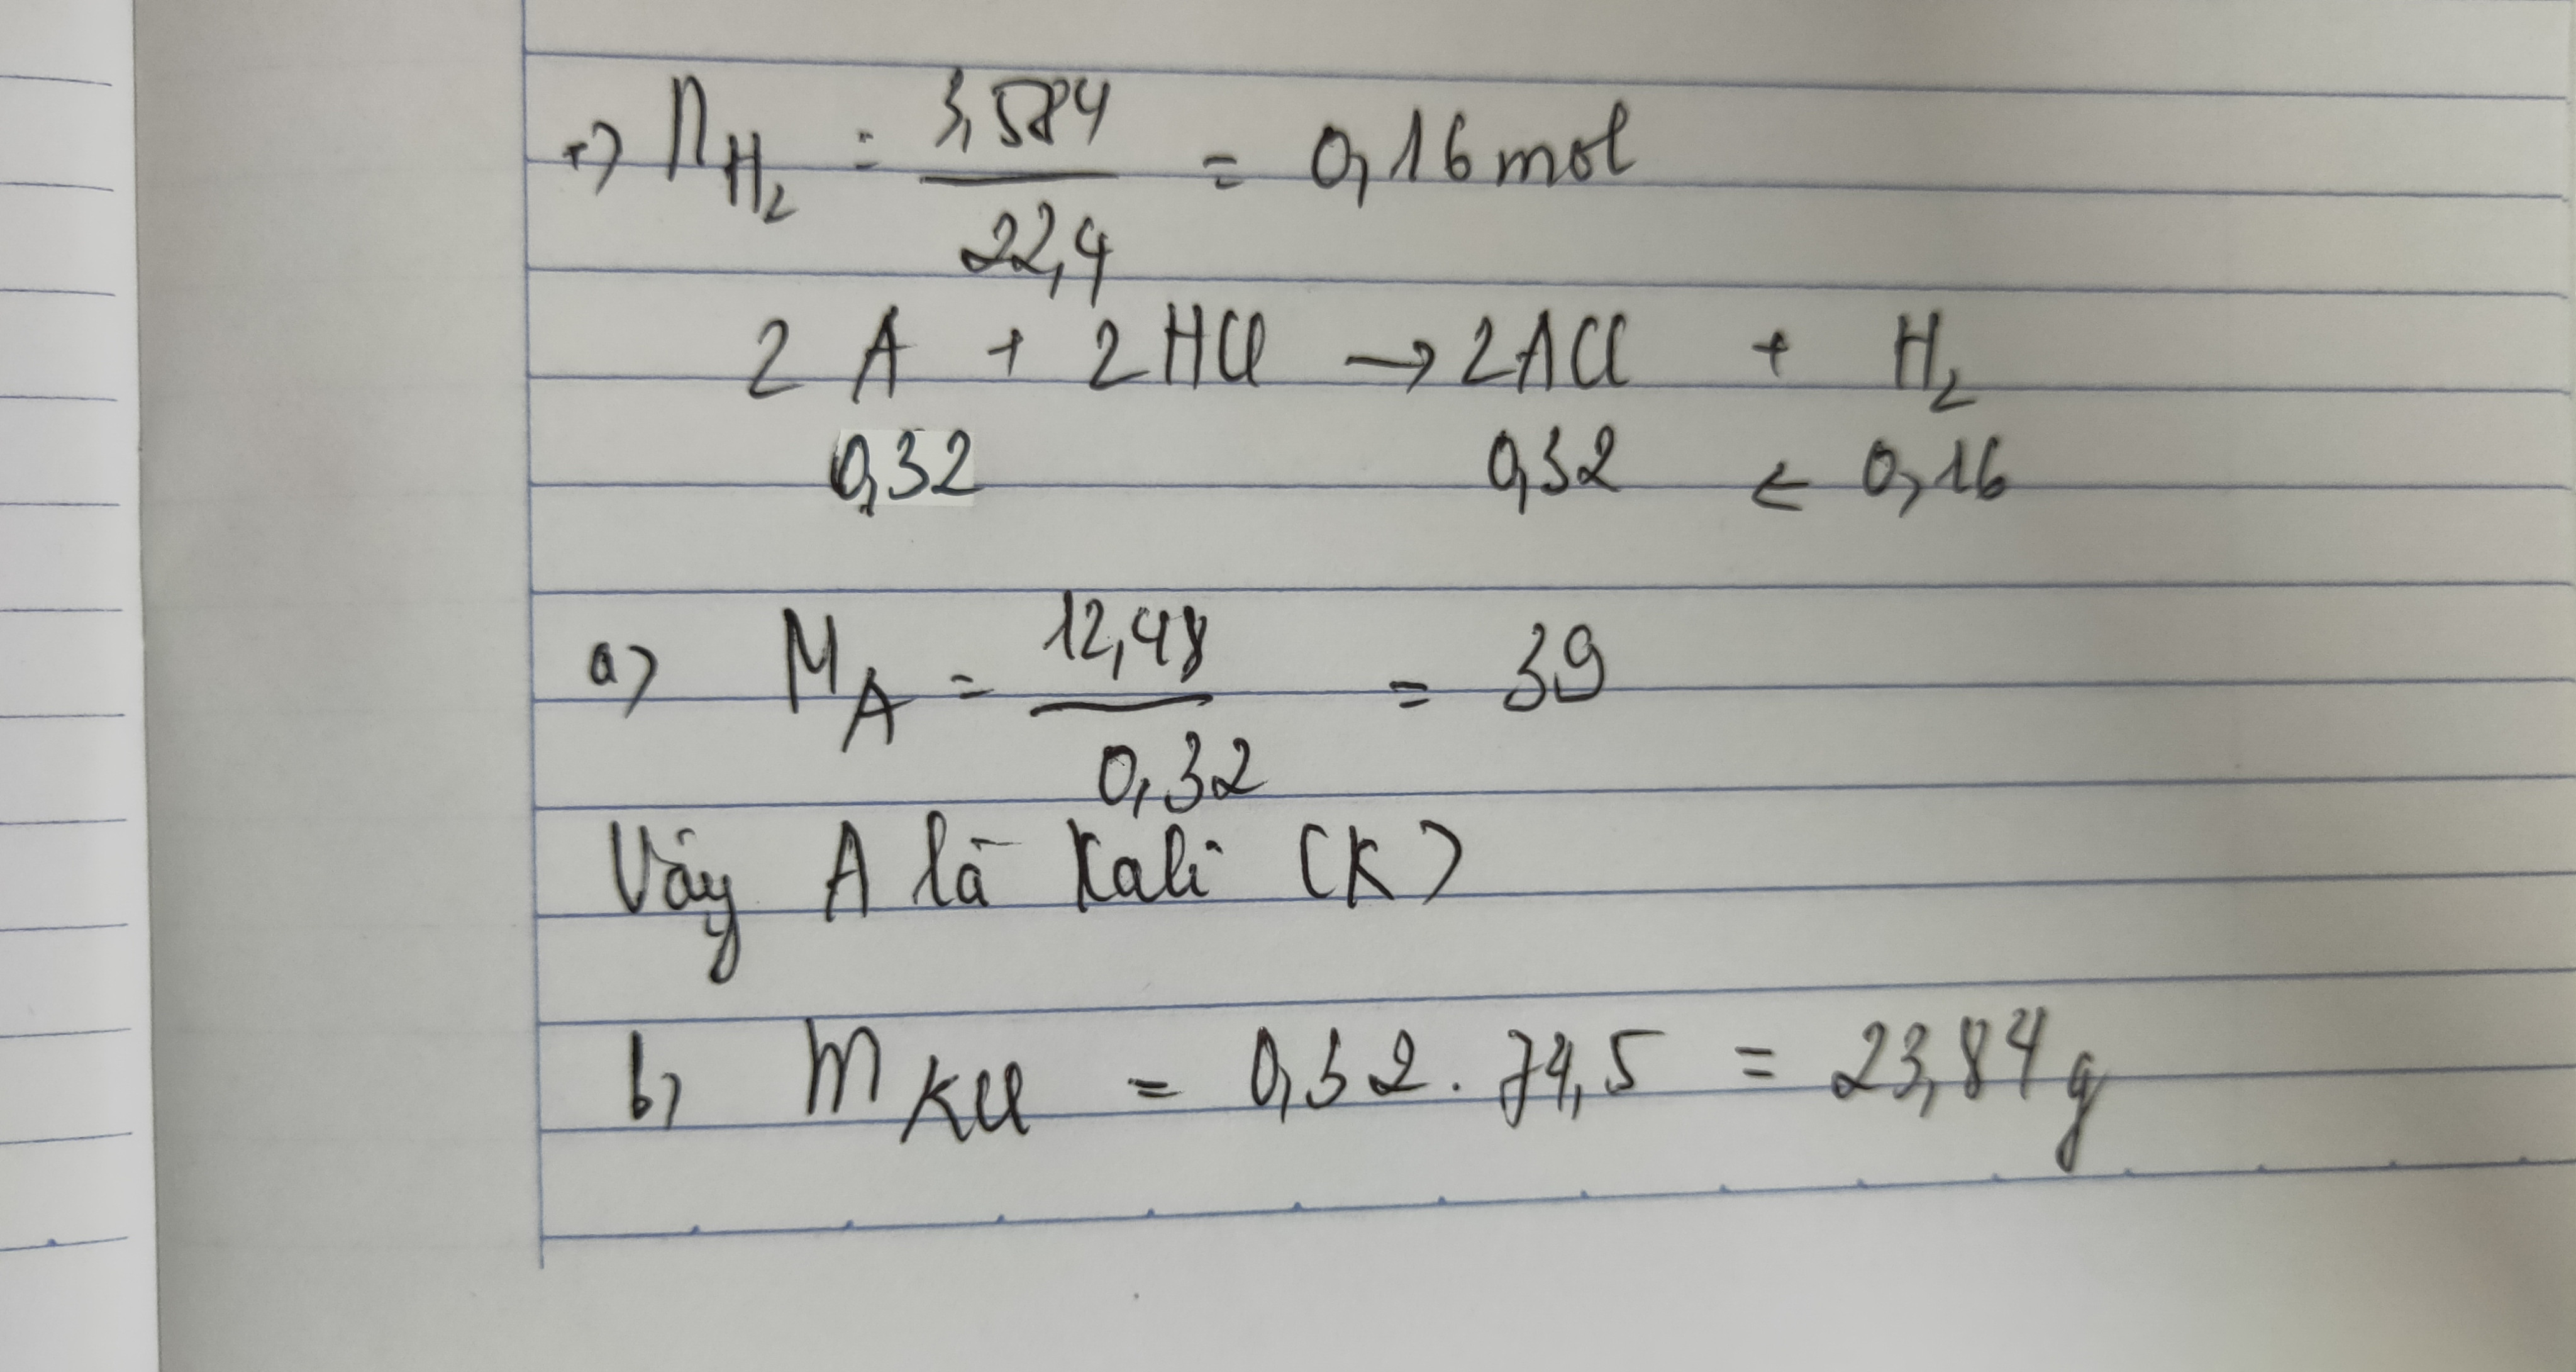 +) n H₂ = 3,584 / 22,4 = 0,16 mol
2 A + 2 HCl → 2 ACl + H₂
0,32 0,32 ← 0,16
a) M A = 12,48 / 0,32 = 39
Vậy A là Kali (K)
b) m KCl = 0,32 . 74,5 = 23,84 g